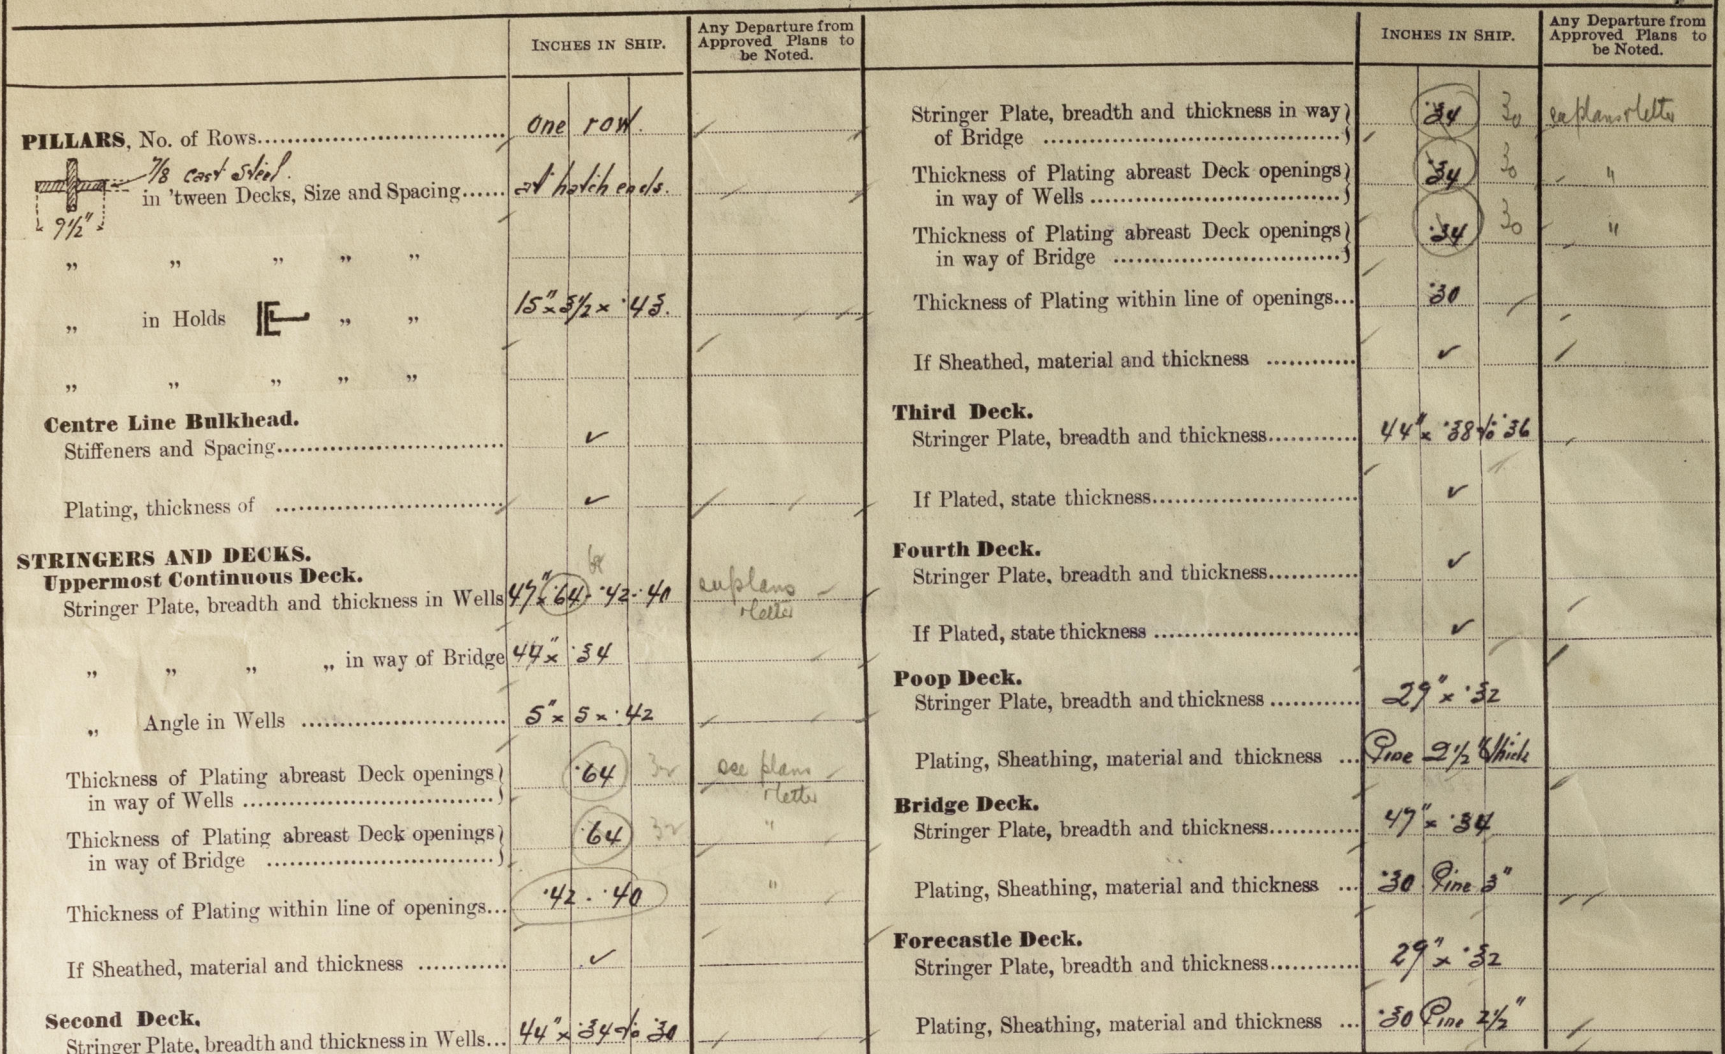 INCHES IN SHIP.
Any Departure from
Approved Plans to
be Noted.
PILLARS, No. of Rows
one row.
7/8 cast steel.
in 'tween Decks, Size and Spacing
at hatch ends.
9½"
" " " " "
" in Holds " "
15" x 3½ x .43.
" " " " "
Centre Line Bulkhead.
Stiffeners and Spacing ✓
Plating, thickness of ✓
STRINGERS AND DECKS.
Uppermost Continuous Deck.
Stringer Plate, breadth and thickness in Wells 47" x .64 - .42 - .40
plans
letter
" " " " in way of Bridge 44" x .34
" Angle in Wells 5" x 5 x .42
Thickness of Plating abreast Deck openings .64 32 see plans
in way of Wells letter
Thickness of Plating abreast Deck openings .64 32 "
in way of Bridge
Thickness of Plating within line of openings... .42 - .40 "
If Sheathed, material and thickness ✓
Second Deck.
Stringer Plate, breadth and thickness in Wells... 44" x .34 to .30
INCHES IN SHIP.
Any Departure from
Approved Plans to
be Noted.
Stringer Plate, breadth and thickness in way .34 30 plans letter
of Bridge
Thickness of Plating abreast Deck openings .34 30 "
in way of Wells
Thickness of Plating abreast Deck openings .34 30 "
in way of Bridge
Thickness of Plating within line of openings... .30
If Sheathed, material and thickness ✓
Third Deck.
Stringer Plate, breadth and thickness 44" x .38 to .36
If Plated, state thickness ✓
Fourth Deck.
Stringer Plate, breadth and thickness ✓
If Plated, state thickness ✓
Poop Deck.
Stringer Plate, breadth and thickness 29" x .32
Plating, Sheathing, material and thickness ... Pine 2½" thick
Bridge Deck.
Stringer Plate, breadth and thickness 47" x .34
Plating, Sheathing, material and thickness ... .30 Pine 3"
Forecastle Deck.
Stringer Plate, breadth and thickness 29" x .32
Plating, Sheathing, material and thickness ... .30 Pine 2½"